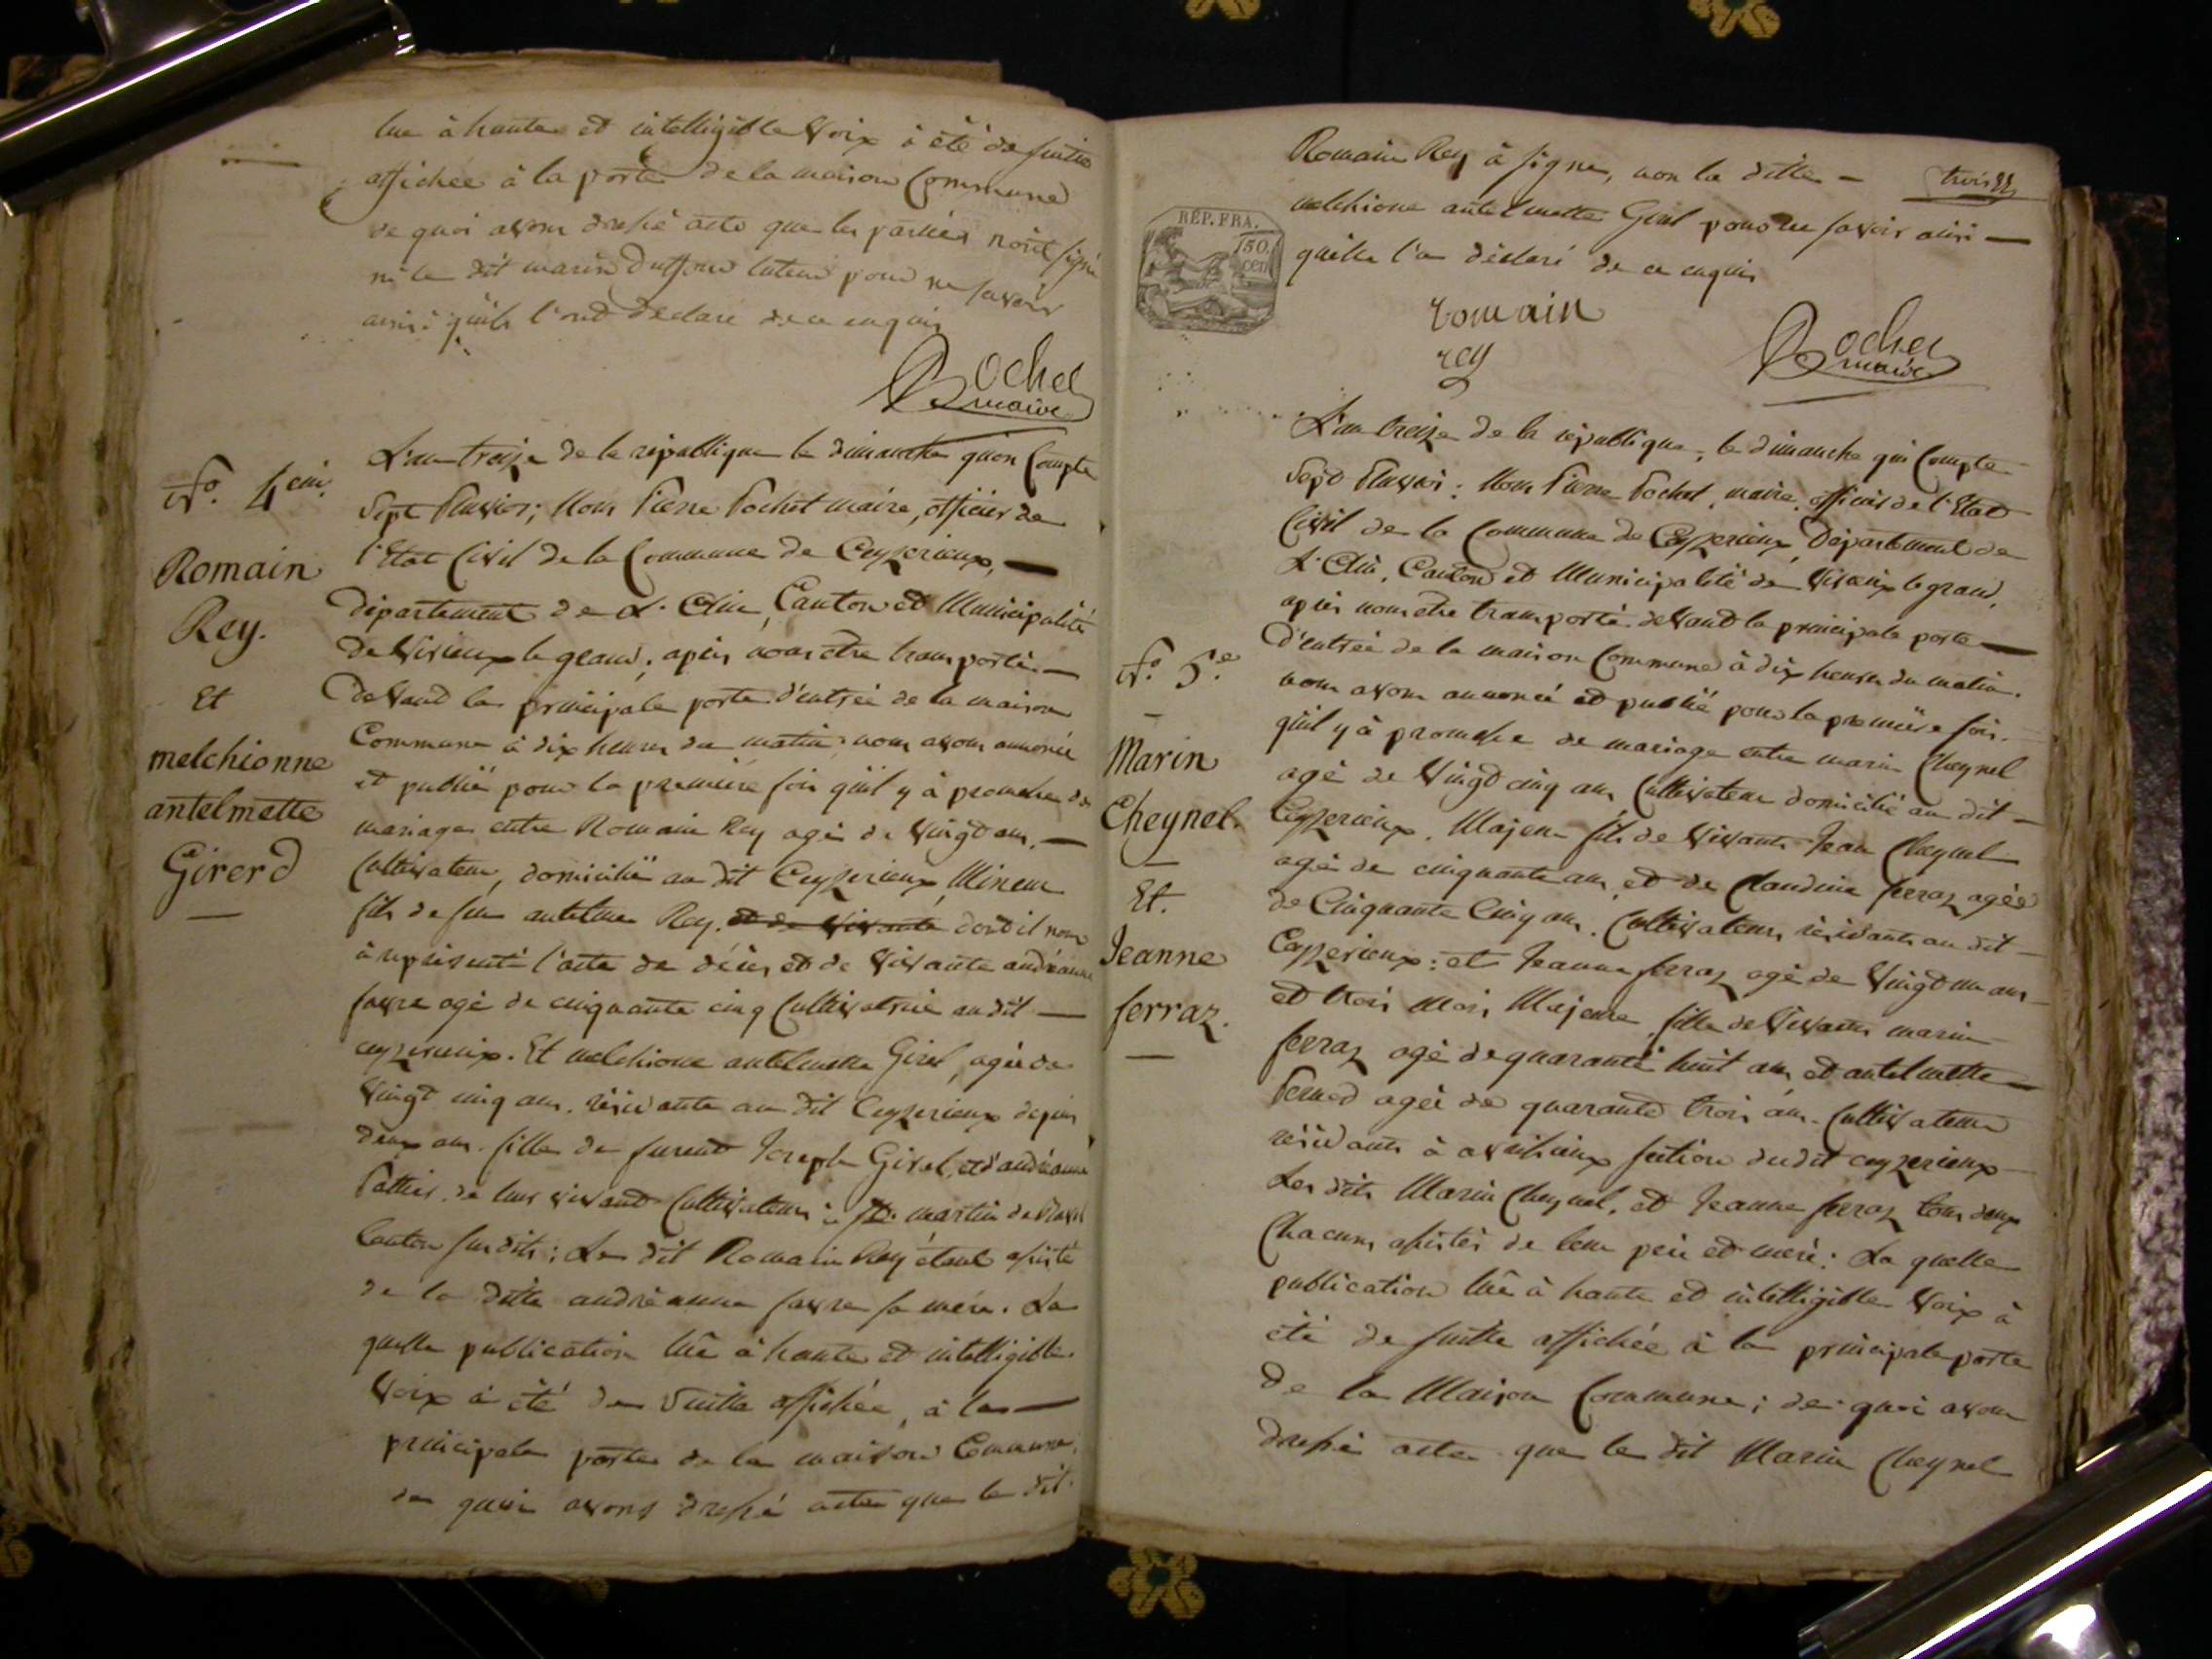 lue à haute et intelligible Voix à été de suitte
affichée à la porte de la maison Commune
de quoi avons dressé acte que les parties n'ont signé
ni le dit marin tuteur pour ne savoir
ainsi qu'ils l'ont déclaré de ce enquis
Bochet
maire
N.o 4eme.
Romain
Rey.
Et
melchionne
antelmette
Girerd
L'an treize de la république le dimanche qu'on Compte
Sept Pluviose; Nous Pierre Bochet maire, officier de
l'Etat Civil de la Commune de Ceyzerieux,
département de L'Ain, Canton et Municipalité
de Virieux le grand, après nous être transporté
devant la principale porte d'entrée de la maison
Commune à dix heures du matin, nous avons annoncé
et publié pour la première fois qu'il y à promesse de
mariage entre Romain Rey agé de Vingt ans,
Cultivateur, domicilié au dit Ceyzerieux, Mineur
fils de feu antelme Rey, et de vivante dont il nous
à représenté l'acte de décès et de Vivante andréanne
favre agé de cinquante cinq Cultivatrice au dit
ceyzerieux. Et melchionne antelmette Girel, agée de
Vingt cinq ans, résidante au dit Ceyzerieux depuis
deux ans, fille de furent Joseph Girel, et d'andréanne
de leur vivant Cultivateurs à St. martin de
Canton susdits; Le dit Romain Rey étant assisté
de la ditte andréanne favre sa mère. La
quelle publication lûe à haute et intelligible
Voix à été de Suitte affichée, à la
principale porte de la maison Commune,
de quoi avons dressé acte que le dit
Romain Rey à signé, non la ditte
trois
melchione antelmette Girel pour ne savoir ainsi
qu'elle l'a déclaré de ce enquis
REP. FRA.
50.
cen
romain
rey
Bochet
maire
N.o 5.e
Marin
Cheynel.
Et.
Jeanne
ferraz.
L'an treize de la république, le dimanche qui Compte
Sept Pluviose: Nous Pierre Bochet, maire, officier de l'Etat
Civil de la Commune de Ceyzerieux, Département de
L'Ain, Canton et Municipalité de Virieux le grand,
après nous être transporté devant la principale porte
d'entrée de la maison Commune à dix heures du matin.
nous avons annoncé et publié pour la première fois.
qu'il y à promesse de mariage entre marin Cheynel
agé de Vingt cinq ans Cultivateur domicilié au dit
Ceyzerieux, Majeur fils de Vivants Jean Cheynel
agé de cinquante ans et de Claudine ferraz agée
de Cinquante Cinq ans. Cultivateurs, résidants au dit
Ceyzerieux: et Jeanne ferraz agé de Vingt un ans
et trois Mois, Majeure, fille de Vivants marin
ferraz agé de quarante huit ans et antelmette
agée de quarante trois ans. Cultivateurs
résidants à avrissieux section dudit ceyzerieux
Les dits Marin Cheynel, et Jeanne ferraz tous deux
Chacuns assistés de leur père et mère: La quelle
publication lûe à haute et intelligible Voix à
été de suitte affichée à la principale porte
de la Maison Commune; de quoi avons
dressé acte que le dit Marin Cheynel